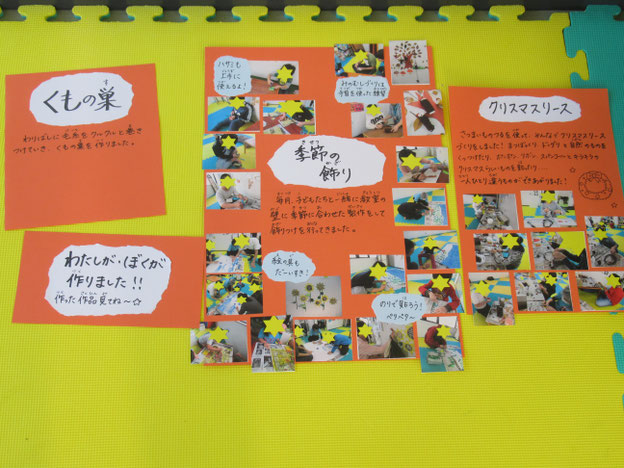 くもの巣
す
わりばしに毛糸をクルクルと巻き
つけていき、くもの巣を作りました。
わたしが・ぼくが
作りました!!
作った作品見てね～☆
ハサミも
上手に
使えるよ!
みのむしづくりにて
季節の
きせつ
飾り
かざ
毎月、子どもたちと一緒に教室の
壁に季節に合わせた製作をして
飾りつけを行ってきました。
絵の具も
だーいすき!
のりで貼ろう!
ペタペタ～
クリスマスリース
さつまいものつるを使って、みんなでクリスマスリース
づくりをしました! まつぼっくり ドングリと自然のものを
くっつけたり、
クリスマスらしいものを飾ったり……
一人ひとり違うものができあがりました!